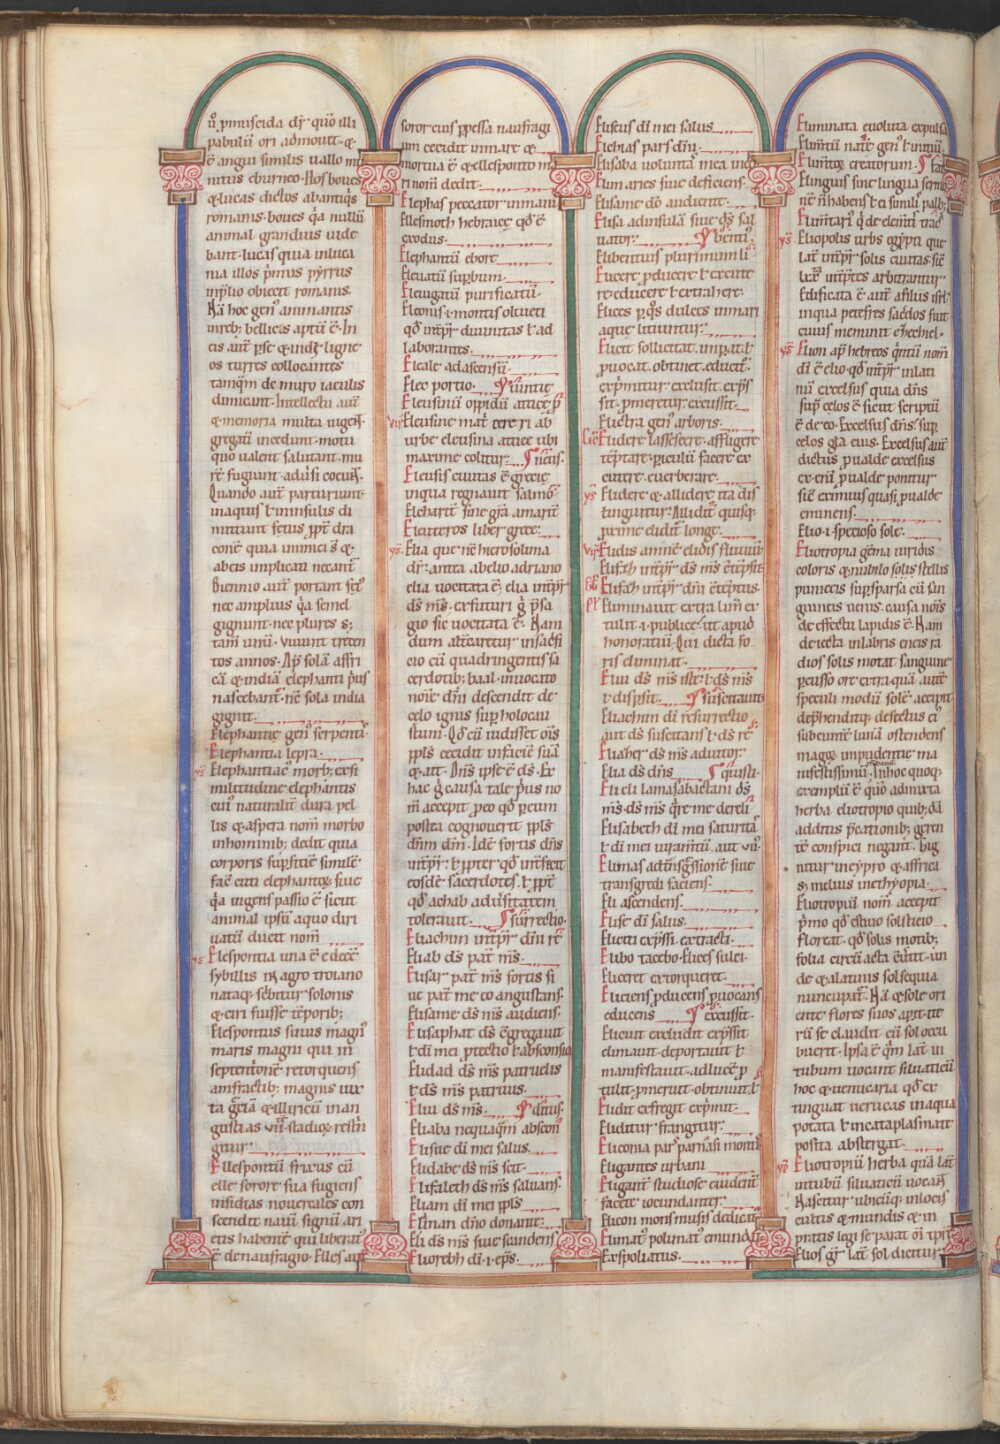 pabulū ori admouit. &
ē angui similis uallo mu
nitus eburneo. Hos boues
& lucas dictos abantiq̄s
romanis. boues q̄a nullū
animal grandius uide
bant. lucas quia inluca
nia illos p̄mus pyrrus
inp̄lio obiecit romanis.
Nā hoc gen' animantis
inreb; bellicis aptū ē. In
eis aut̄ p̄se & indi ligne
os turres collocantes
tamq̄m de muro iaculis
dimicant. Intellectu aut̄
& memoria multa uigen̄t
gregati incedunt. motu
quo ualent salutant. mu
rē fugiunt. aduersi coeun̄t.
Quando aut̄ parturiunt
inaquis ł insulis di
mittunt fetus ꝓpt̄ dra
conē quia inimici s̄ &
abeis implicati necant̄
Biennio aut̄ portant fet'
nec amplius q̄a semel
gignunt. nec plures s;
tam̄ unū. Viuunt trecen
tos annos. Ap̄ solā affri
cā & indiā elephanti p̄us
nascebant̄. n̄c sola india
gignit.
Elephantie gen' serpenti.
Elephantia lepra.
Elephantiac' morb; exsi
militudine elephantis
cui' naturalit̄ dura pel
lis & aspera nom̄ morbo
inhominib; dedit quia
corporis sup̄ficiē similē
facit elephantoꝝ siue
q̄a ingens passio ē sicut
animal ipsū aquo diri
uatū ducit nom̄
Elespontia una ē e decē
sybillis in agro troiano
nataq; scribitur solonis
& ciri fuisse tēporib;
Elespontus sinus magn'
maris magni qui in
septentrionē retorquens
amfractib; magnis iux
ta grecīā & illiricū inan
gustias uii stadioꝝ restrin
gitur:
Ellespontū frixus cū
elle sorore sua fugiens
insidias nouercales con
scendit nauī signū ari
etis habentē qui liberat'
ē denaufragio. Elles aut̄
soror eius ꝑpessa naufragi
um cecidit inmare &
mortua ē & ellesponto ma
ri nom̄ dedit.
Elephas peccator inmani
Ellesmoth hebraice qd̄ ē
exodus.
Elephantū ebore
Eleuatū sup̄bum.
Eleugatū purificatū.
Eleonis. i. montis oliueti
qd̄ int̄pr̄ diuinitas ł ad
laborantes.
Elcale adascensū.
Elec portio.
Eleusinū oppidū atticę
Eleusine mat̄ cereri ab
urbe eleusina attice ubi
maxime colitur:
Eleusis ciuitas ē grecię
inqua regnauit salmō.
Elcharit̄ sine gr̄a amarit̄
Eleuteros liber grece:
Elia que n̄c hierosolima
dr̄. antea abelio adriano
elia uocitata ē. elia int̄pr̄
ds̄ ms̄. exfuturi ḡ p̄sa
gio sic uocitata ē. Nam
dum altēarētur insacrifi
cio cū quadringentis sa
cerdotib; baal. inuocato
noīe dn̄i descendit de
celo ignis sup̄ holocau
stum. Qd̄ cū uidisset om̄s
ppl̄s cecidit infaciē suā
& ait. Dn̄s ipse ē ds̄. Ex
hac ḡ causa tale p̄us no
m̄ accepit ꝓeo qd̄ ꝑeum
postea cognouerit ppl̄s
dn̄m dm̄. Idc̄ fortis dn̄s
int̄pr̄. ł ꝓpter qd̄ int̄fecit
eosdē sacerdotes. ł ꝓpt̄
qd̄ achab aduersitatem
tolerauit.
Eliachim int̄pr̄ dn̄i re
Eliab ds̄ pat̄ ms̄.
Elisar pat̄ ms̄ fortis si
ue pat̄ me coangustans.
Elisame ds̄ ms̄ audiens.
Elisaphat ds̄ egregauit
ł di mei ꝓtectio ł absconsio
Elidad ds̄ ms̄ patruelis
ł ds̄ ms̄ patruus.
Eliu ds̄ ms̄.
Eliaba nequaq̄m abscon
Elisue dī mei salus
Elidabe ds̄ ms̄ scit.
Elifaleth ds̄ ms̄ saluans.
Eliam dī mei ppl̄s
Elinan dn̄o donante:
Eli ds̄ ms̄ siue scandens
Elioreb dī. i. ep̄s.
Eliseus dī mei salus
Elebias pars dn̄i.
Elisaba uoluntas mea ineo
Elim aries siue deficiens.
Elisame dō audient.
Elisa adinsulā siue ds̄ sal
uator:
Elibentius plurimum li
Elicere ꝓducere ł excute
re. educere ł extrahere.
Elices ꝑq̄s dulces inmari
aque lituntur:
Elicit sollicitat. imperat. ł
ꝓuocat. obtinet. educit.
exp̄mitur. exclusit. exp̄s
sit. ꝓmeretur. excussit.
Elictra gen' arboris.
Elidere lassescere. affligere
tēptare. ꝑiculū facere. ex
cutere. euerberare.
Elidere & allidere ita dis
tinguitur. Allidit̄ quisq;
ꝓxime. elidit̄ longe.
Elidis amnē elidis fluuiū
Elifath int̄pr̄ ds̄ ms̄ cōtēpsit
Elifath int̄pr̄ dīm cōtēptus
Eliminauit extra limē ex
tulit. i. publice. ut apud
honoratiū. Qui dicta fo
ris eliminat.
Eliu ds̄ ms̄ iste. ł ds̄ ms̄
ł dispersit.
Eliachim dī resurrectio
aut ds̄ suscitans ł ds̄ re
Eliaber ds̄ ms̄ adiutor:
Elia ds̄ dn̄s
Eli eli lamasabactani ds̄
ms̄ ds̄ ms̄ q̄re me dereli
Elisabeth dī mei saturitas
ł dī mei iuramtū. aut uii
Elimas ad transgressionē siue
transgredi faciens.
Eli ascendens.
Elise dī salus.
Eliciti exp̄ssi. extracti.
Elibo tacebo. Elices sulci.
Elicerit extorqueret
Eliciens ꝓducens ꝓuocans
educens
Elicuit excludit exp̄ssit
elimauit. deportauit ł
manifestauit. adlucē ꝓ
tulit. ꝓmeruit. obtinuit. ł
Elidit effregit. exp̄mit.
Eliditur frangitur.
Eliconia pars parnasi montis
Eligantes urbani
Eligant̄ studiose euident̄
facete iocundanter:
Elicon mons musis dedicat'
Elimat' polimat' emundat'
Exspoliatus.
Eliminata euoluta. expulsa
Elinguis sine lingua sermo
Eliopolis urbs egypti que
lat̄ int̄pr̄ solis ciuitas. sic
lxx int̄ptes arbitrantur.
Edificata ē aut̄ afiliis isrl̄
inqua petefres sacdos fuit
cuius meminit ezechiel.
Elion ap̄ hebreos q̄ntū nom̄
dī ē elio. qd̄ int̄pr̄ inlati
nū excelsus quia dn̄s
sup̄ celos ē sicut scriptū
ē de eo. Excelsus dn̄s. sup̄
celos gl̄a eius. Excelsus aut̄
dictus ꝓualde excelsus
ex enī ꝓualde ponitur
sic eximius quasi ꝓualde
eminens.
Elio. i. specioso sole.
Eliotropia gēma uiridis
coloris & nubilo solis stellis
puniceis sup̄sparsa cū san
guineis uenis. causa noīs
de effectu lapidis ē. Nam
deiecta inlabris eneis ra
dios solis motat sanguine
ꝑcusso ore. extra quā aut̄
speculi modū solē accipit
dep̄henditq; defectus ei'
subeuntē lunā ostendens
magoꝝ impudentie ma
nifestissimū. Inhoc quoq;
exemplū ē quō admixta
herba eliotropio quib;dā
additis p̄cationib; geren
tē conspici negant. Gig
nitur incypro & affrica
s; melius inethyopia.
Eliotropiū nom̄ accepit
p̄mo qd̄ estiuo solsticio
floreat. qd̄ solis motib;
folia circūacta cōuertit. un
de & alatinis solsequia
nuncupat̄. Nā & sole ori
ente flores suos apit. ite
rū se claudit cū sol occu
buerit. Ipsa ē q̄m lat̄ in
tubum uocant siluaticū
hoc & uerrucaria qd̄ ex
tinguat uerrucas inaqua
potata ł incataplasmate
posita abstergat.
Eliotropiū herba quā lat̄
intubū siluaticū uocan̄t
Nascitur ubicūq; inlocis
cultis & mundis & in
pratis legi se parat om̄i tp̄re
Elios gr̄. lat̄ sol dicitur.